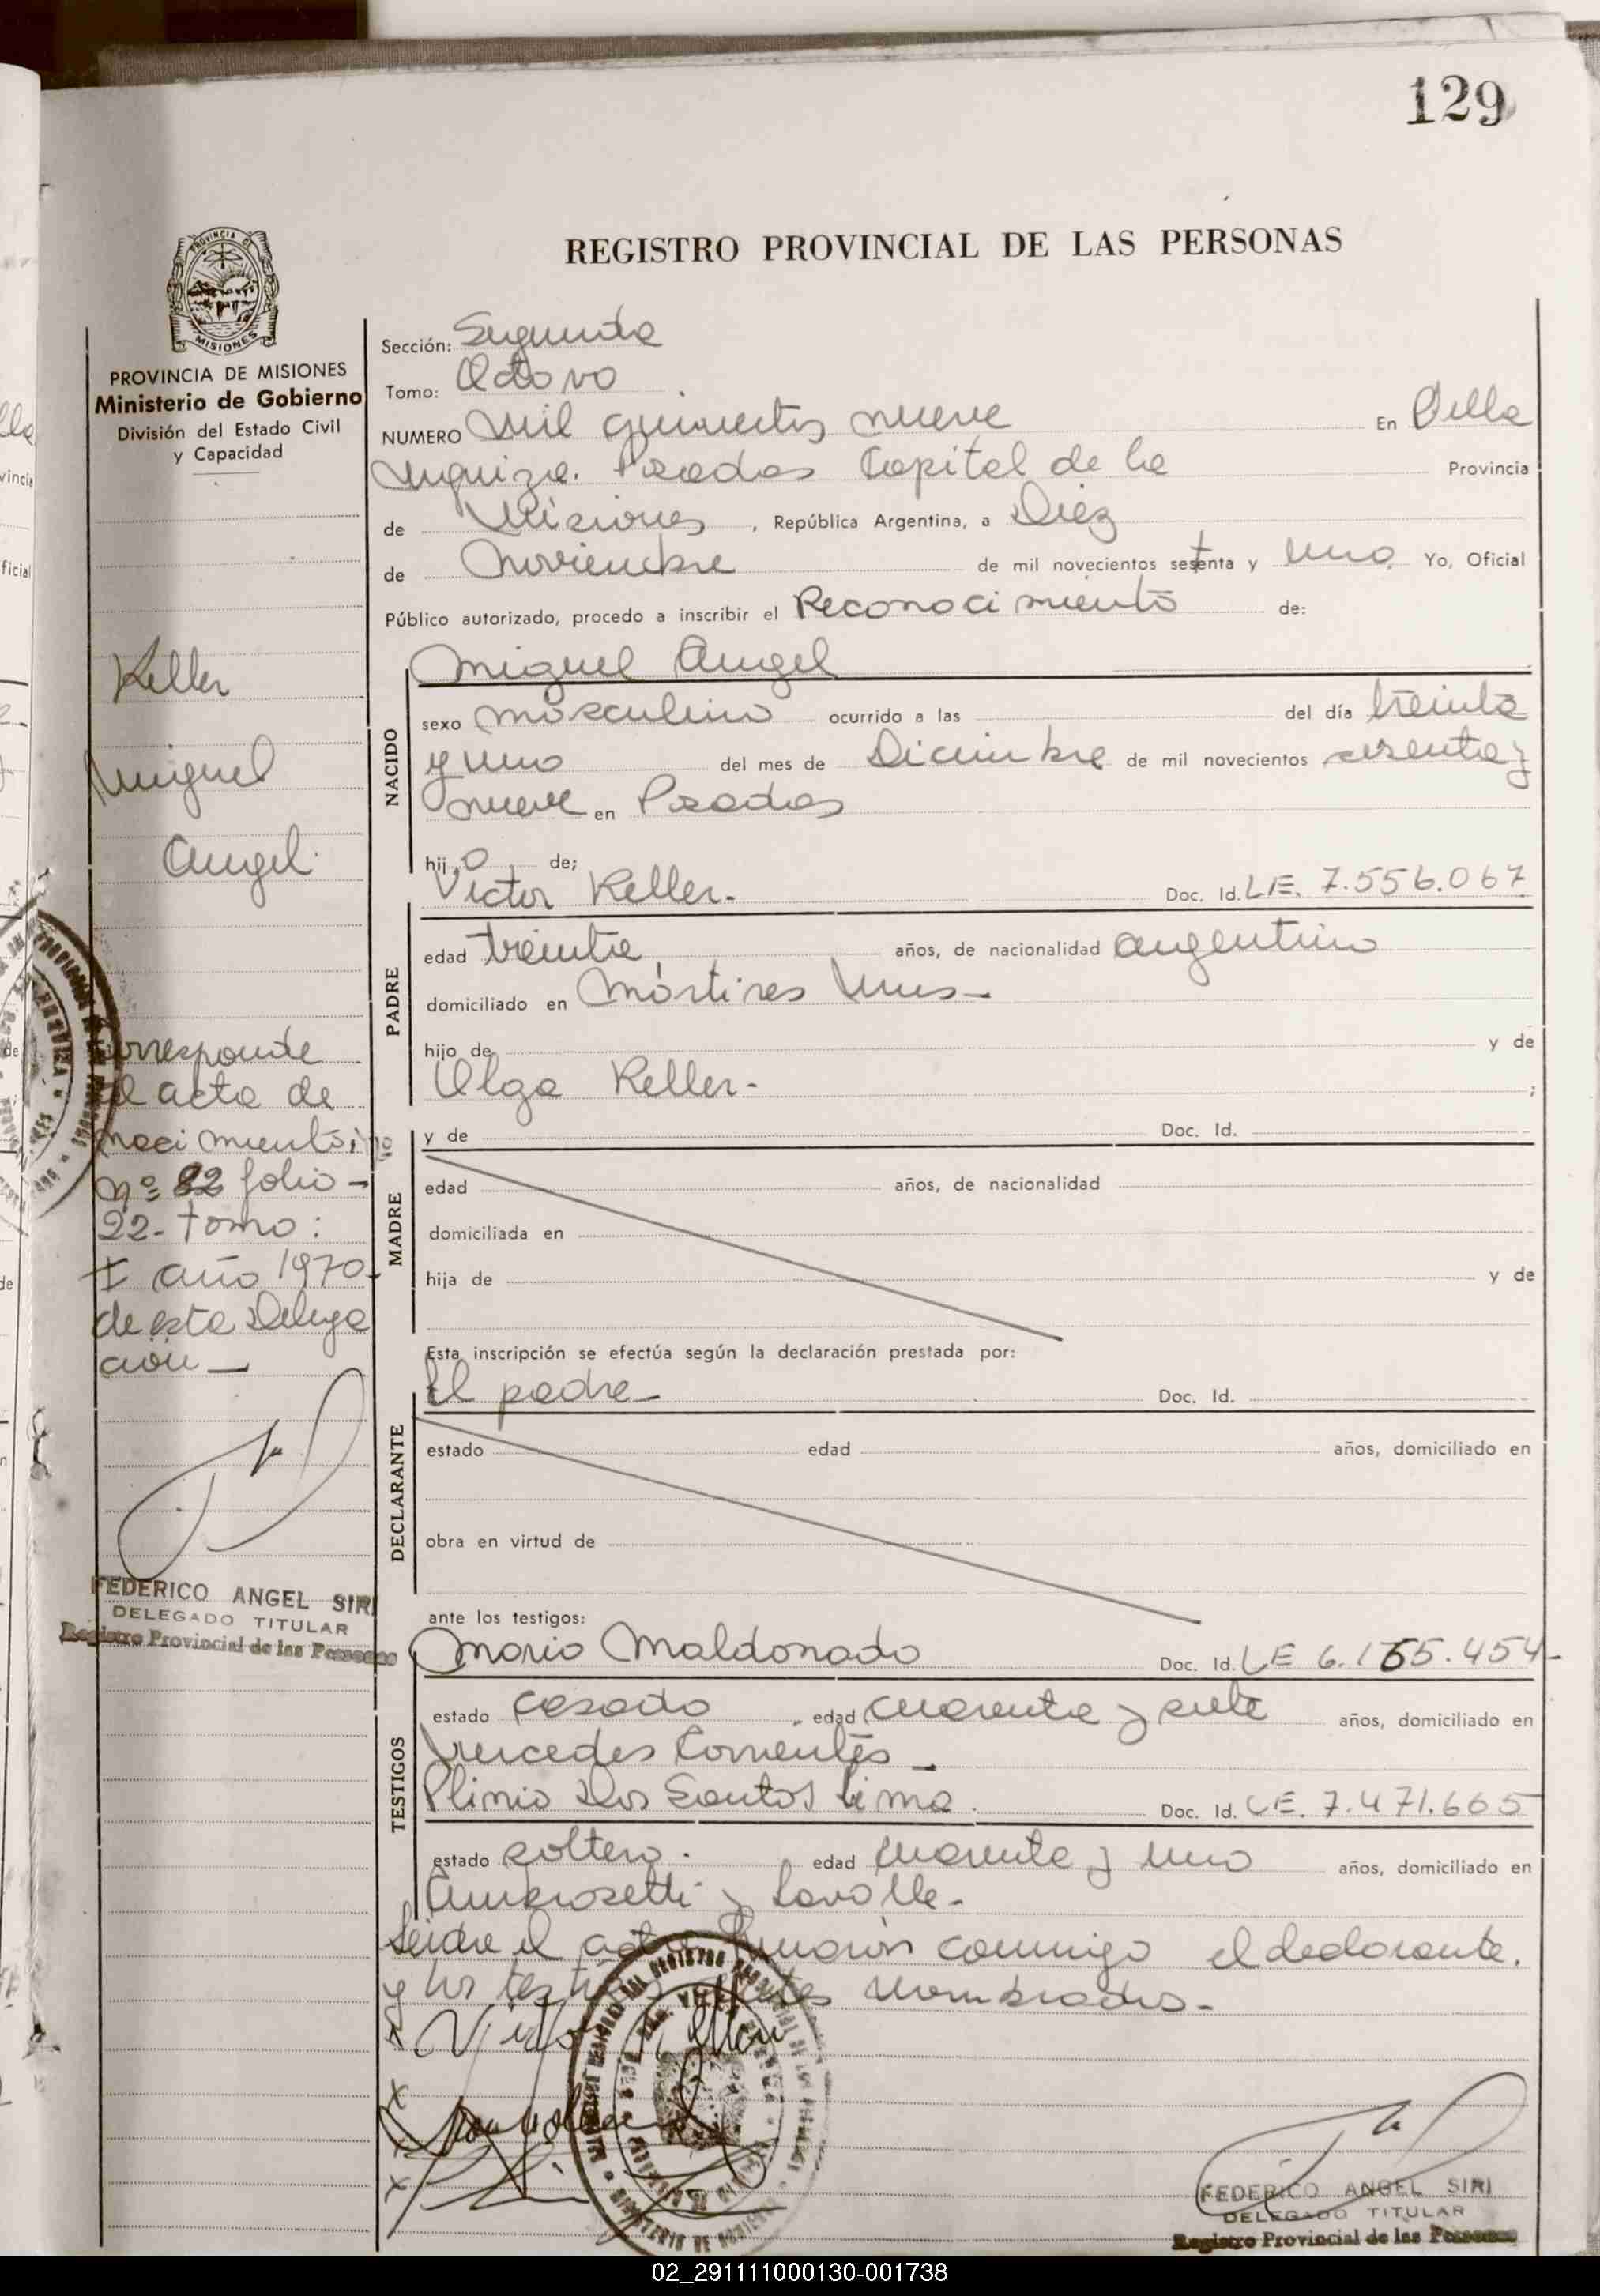 129
REGISTRO PROVINCIAL DE LAS PERSONAS
PROVINCIA DE MISIONES
Ministerio de Gobierno
División del Estado Civil
y Capacidad
Keller
Miguel
Angel
Corresponde
al acta de
nacimiento:
nº 82 folio -
22- tomo:
I año 1970-
de esta Delega
ción -
FEDERICO ANGEL SIRI
DELEGADO TITULAR
Registro Provincial de las Personas
Sección: Segunda
Tomo: Octavo
NUMERO Mil quinientos nueve En Villa
Urquiza. Posadas Capital de la Provincia
de Misiones, República Argentina, a Diez
de Noviembre de mil novecientos setenta y uno. Yo, Oficial
Público autorizado, procedo a inscribir el Reconocimiento de:
Miguel Angel
NACIDO
sexo masculino ocurrido a las del día treinta
y uno del mes de Diciembre de mil novecientos sesenta y
nueve en Posadas
hijo de;
Victor Keller. Doc. Id. LE. 7.556.067
PADRE
edad treinta, años, de nacionalidad argentino
domiciliado en Mártires Mnes-
hijo de y de
Olga Keller- ;
MADRE
y de Doc. Id.
edad años, de nacionalidad
domiciliada en
hija de y de
Esta inscripción se efectúa según la declaración prestada por:
El padre- Doc. Id.
DECLARANTE
estado edad años, domiciliado en
obra en virtud de
ante los testigos:
Mario Maldonado Doc. Id. LE 6.155.454-
TESTIGOS
estado casado, edad cuarenta y siete años, domiciliado en
Mercedes Corrientes
Plinio Dos Santos Lima. Doc. Id. LE. 7.471.665
estado soltero. edad cuarenta y uno años, domiciliado en
Ambrosetti y Lavalle-
Leída el acta firmaron conmigo el declarante.
y los testigos antes nombrados-
Victor Keller
FEDERICO ANGEL SIRI
DELEGADO TITULAR
Registro Provincial de las Personas
02_291111000130-001738